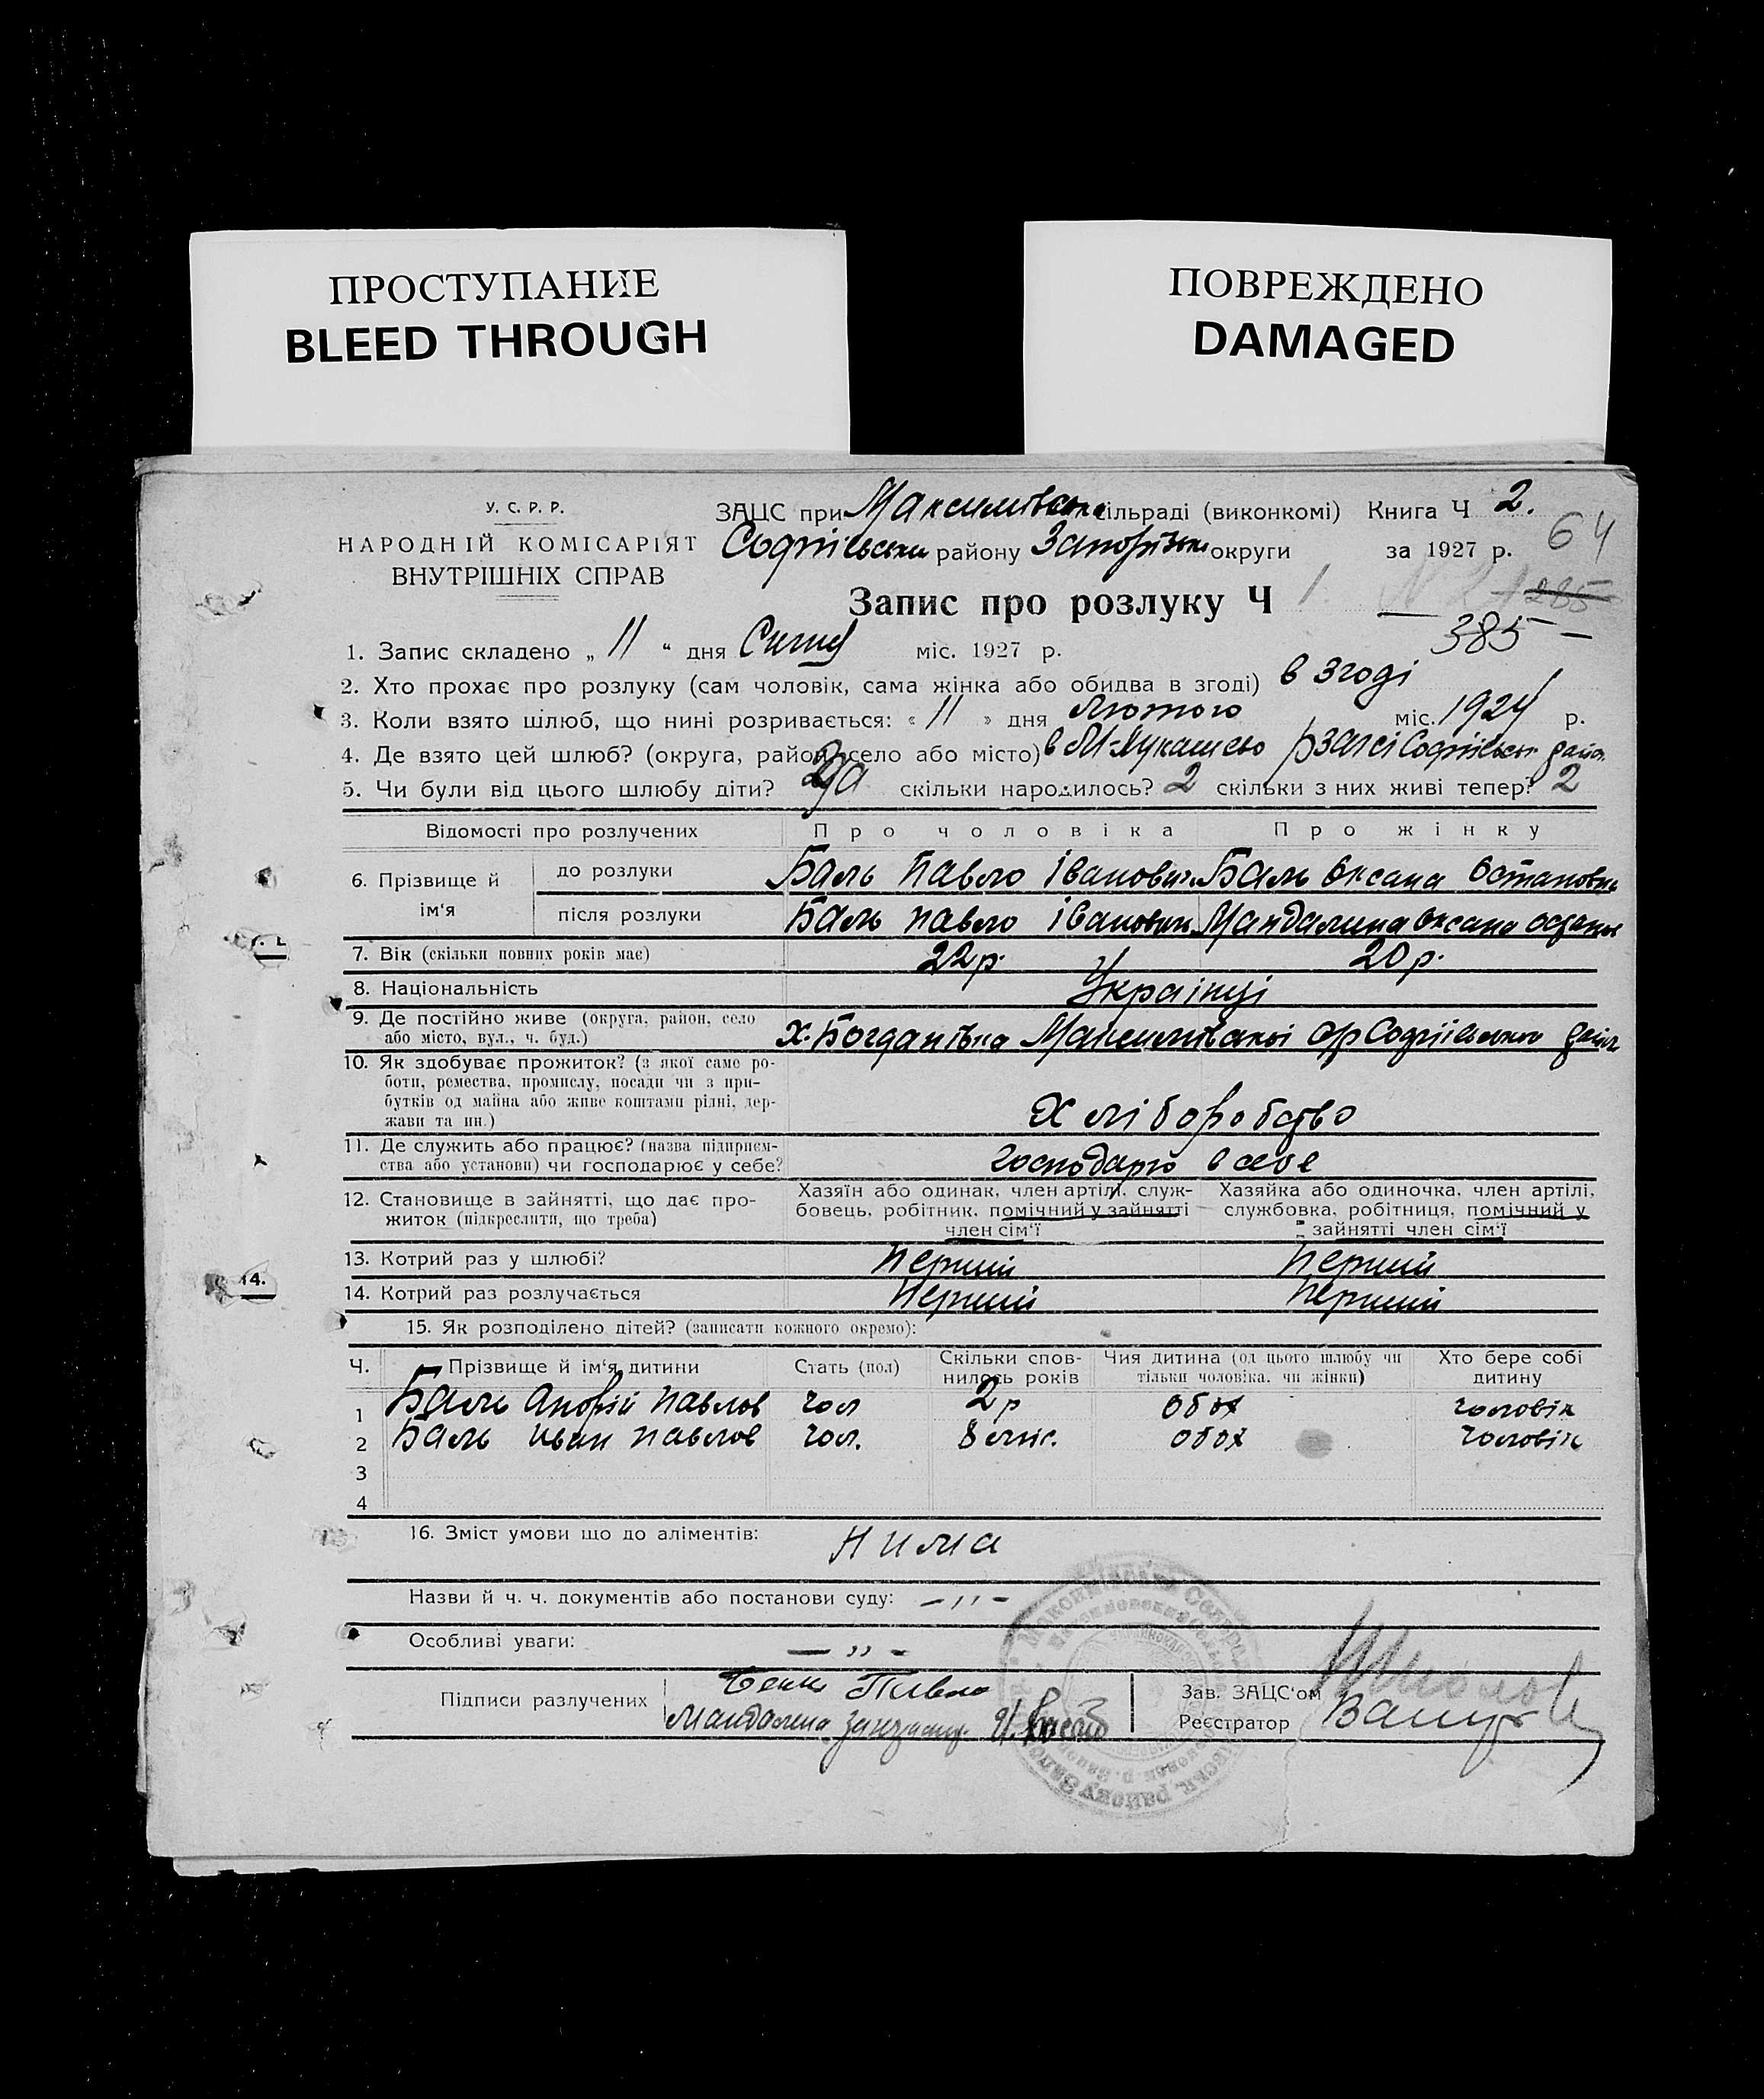 ПРОСТУПАНИЕ
BLEED THROUGH
ПОВРЕЖДЕНО
DAMAGED
У. С. Р. Р.
НАРОДНІЙ КОМІСАРІЯТ
ВНУТРІШНІХ СПРАВ
ЗАЦС при Максимівська сільраді (виконкомі) Книга Ч 2.
Софіївськи району Запорізьк округи за 1927 р. 64
Запис про розлуку Ч 1
285
385 —
1. Запис складено „ 11 “ дня Січня міс. 1927 р.
2. Хто прохає про розлуку (сам чоловік, сама жінка або обидва в згоді) в згоді
3. Коли взято шлюб, що нині розривається: « 11 » дня Лютого міс. 1924 р.
4. Де взято цей шлюб? (округа, район, село або місто) в М-Лукашево рзагсі Софіївськ район
5. Чи були від цього шлюбу діти? Да скільки народилось? 2 скільки з них живі тепер? 2
Відомості про розлучених Про чоловіка Про жінку
6. Прізвище й ім‘я до розлуки Баль Павло Іванович Баль Оксана Остаповна
після розлуки Баль Павло Іванович Мандалина Оксана
7. Вік (скільки повних років має) 22 р. 20 р.
8. Національність Українці
9. Де постійно живе (округа, район, село
або місто, вул., ч. буд.) Х. Богданівка Максимівської с/р Софіївського район
10. Як здобуває прожиток? (з якої саме ро-
боти, ремества, промислу, посади чи з при-
бутків од майна або живе коштами рідні, дер-
жави та ин.) Хліборобство
11. Де служить або працює? (назва підприєм-
ства або установи) чи господарює у себе? господарю в себе
12. Становище в зайнятті, що дає про-
житок (підкреслити, що треба)
Хазяїн або одинак, член артілі, служ-
бовець, робітник, помічний у зайнятті
член сім‘ї
Хазяйка або одиночка, член артілі,
службовка, робітниця, помічний у
зайнятті член сім‘ї
13. Котрий раз у шлюбі? Перший Перший
14. Котрий раз розлучається Перший Перший
15. Як розподілено дітей? (записати кожного окремо):
Ч. Прізвище й ім‘я дитини Стать (пол) Скільки спов-
нилось років Чия дитина (од цього шлюбу чи
тільки чоловіка, чи жінки) Хто бере собі
дитину
1 Баль Андрій Павлов чол 2 р обох чоловік
2 Баль Иван Павлов чол. 8 міс. обох чоловік
3
4
16. Зміст умови що до аліментів: Нима
Назви й ч. ч. документів або постанови суду: — ,, —
Особливі уваги: — ,, —
Підписи разлучених Павло
Мандалина
Зав. ЗАЦС‘ом
Реєстратор
14.